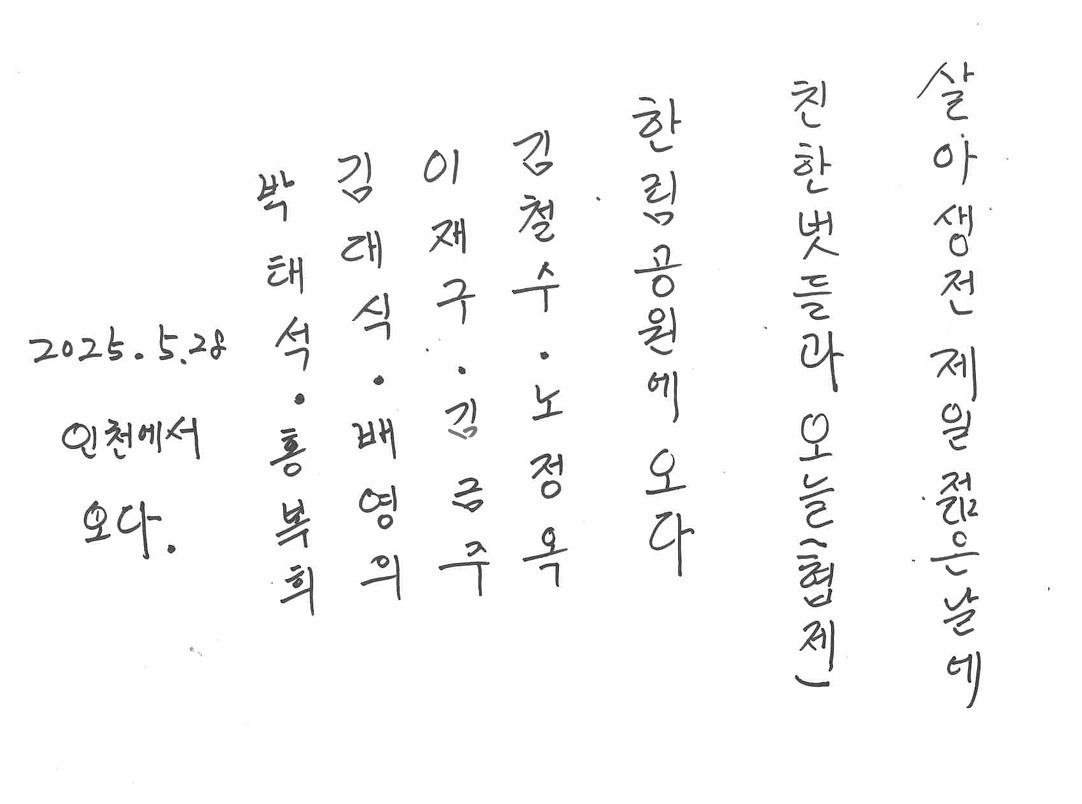 살아생전 제일 젊은날에
친한벗들과 오늘(협제)
한림공원에 오다
김철수·노정옥
이재구·김금주
김대식·배영의
박태석·홍복희
2025.5.28
인천에서
오다.